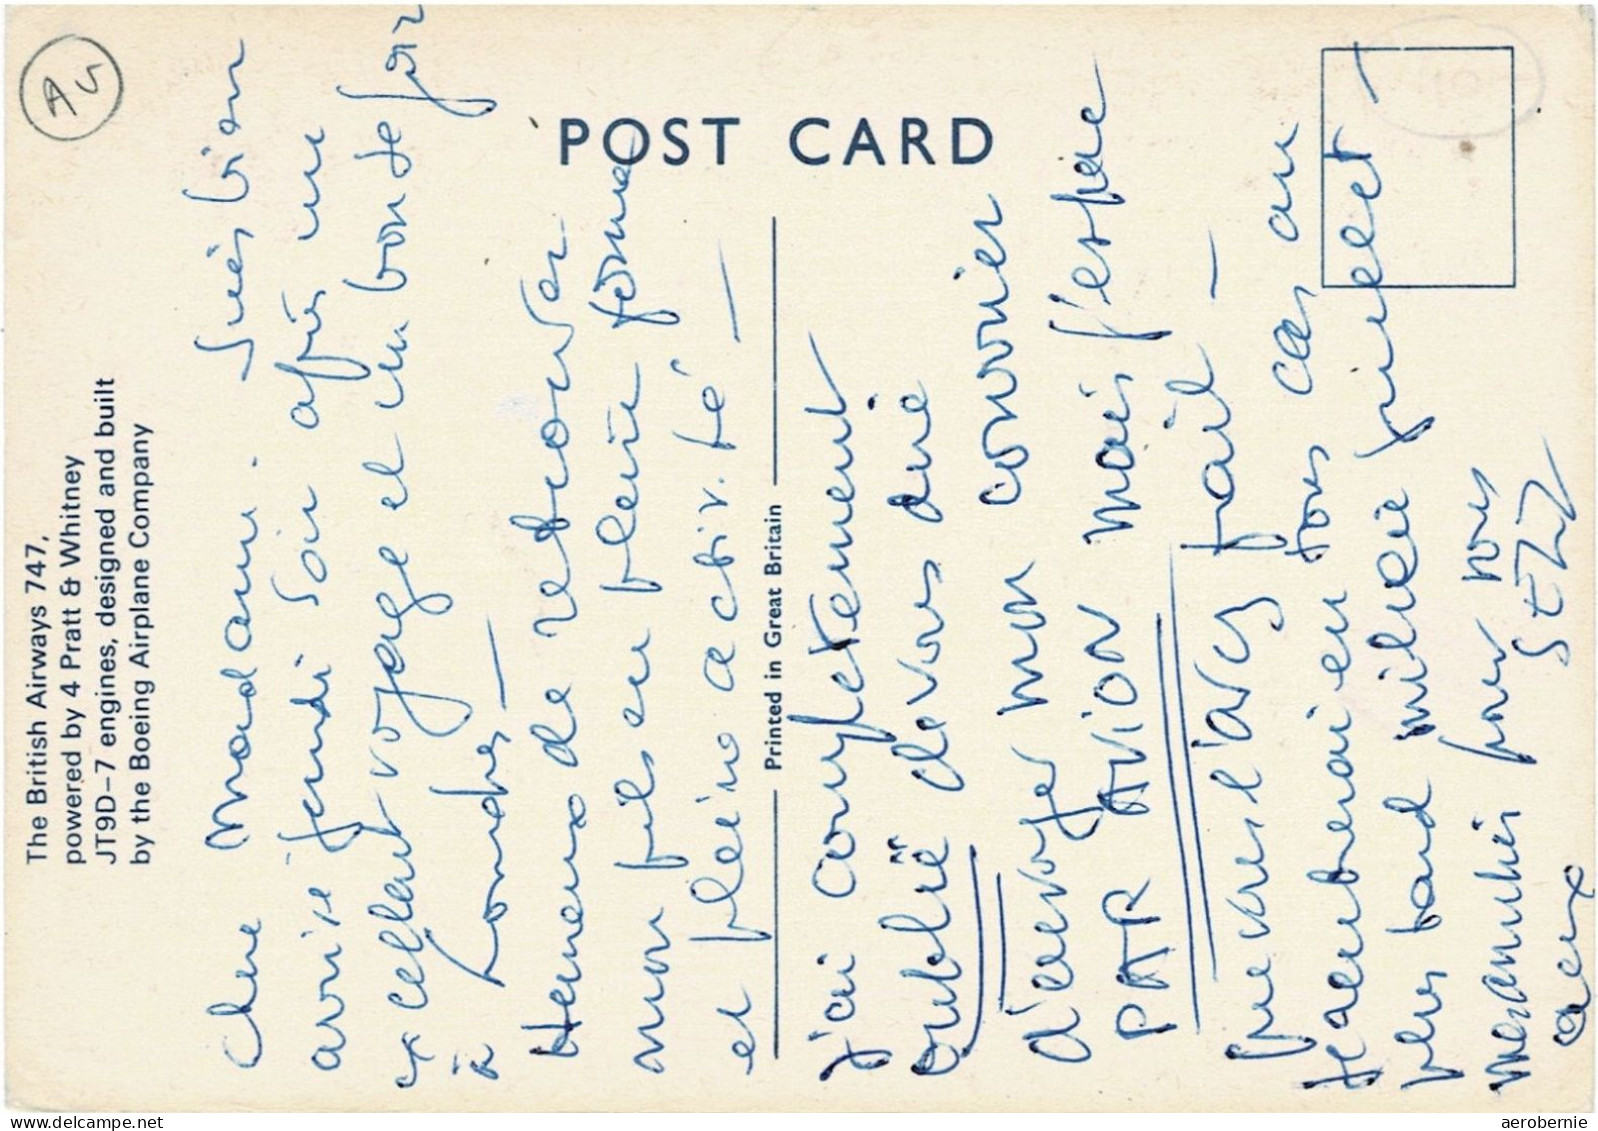 The British Airways 747,
powered by 4 Pratt & Whitney
JT9D-7 engines, designed and built
by the Boeing Airplane Company
AU
POST CARD
Printed in Great Britain
Chère Madame. Suis bien
arrivé jeudi soir après un
excellent voyage et un bon
à Londres —
Heureux de retrouver
mon fils en pleine forme
et pleine activité —
J'ai complètement
oublié de vous dire
d'envoyer mon courrier
PAR AVION mais j'espère
que vous l'avez fait —
tous cas au
plus tard milieu juillet —
pour vous
aerobernie